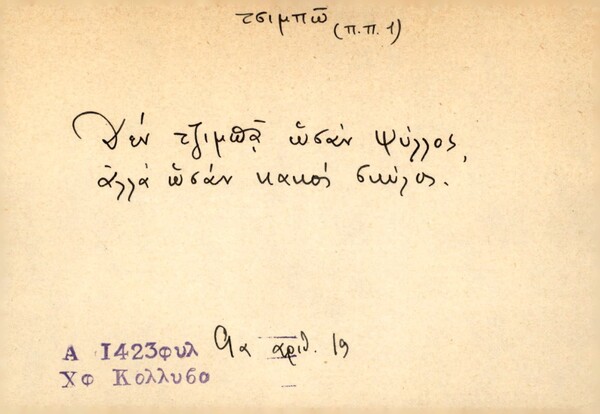 τσιμπῶ (π.π. 1)
Δέν τζιμπᾷ ὥσάν ψύλλος,
ἀλλά ὥσάν κακός σκύλος.
Α 1423φυλ αριθ. 19
Χφ Κολλυβα